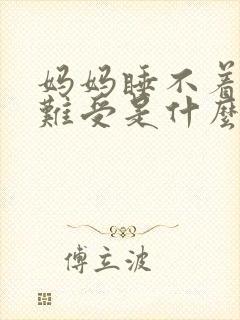 妈妈睡不着
難受是什麼
傅立波